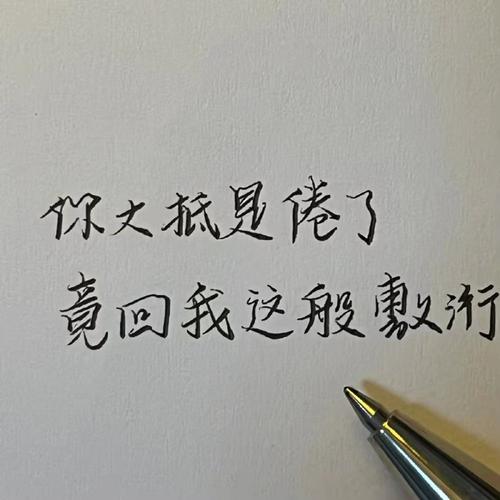 你大抵是倦了
竟回我这般敷衍